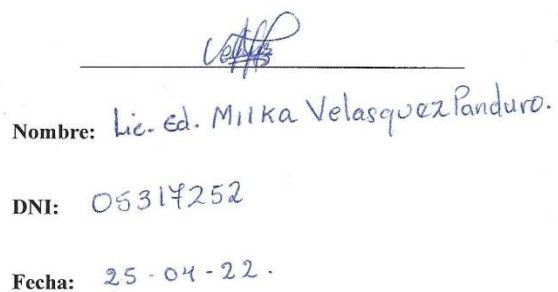 Nombre: Lic. Ed. Milka Velasquez Panduro.
DNI: 05317252
Fecha: 25-04-22.